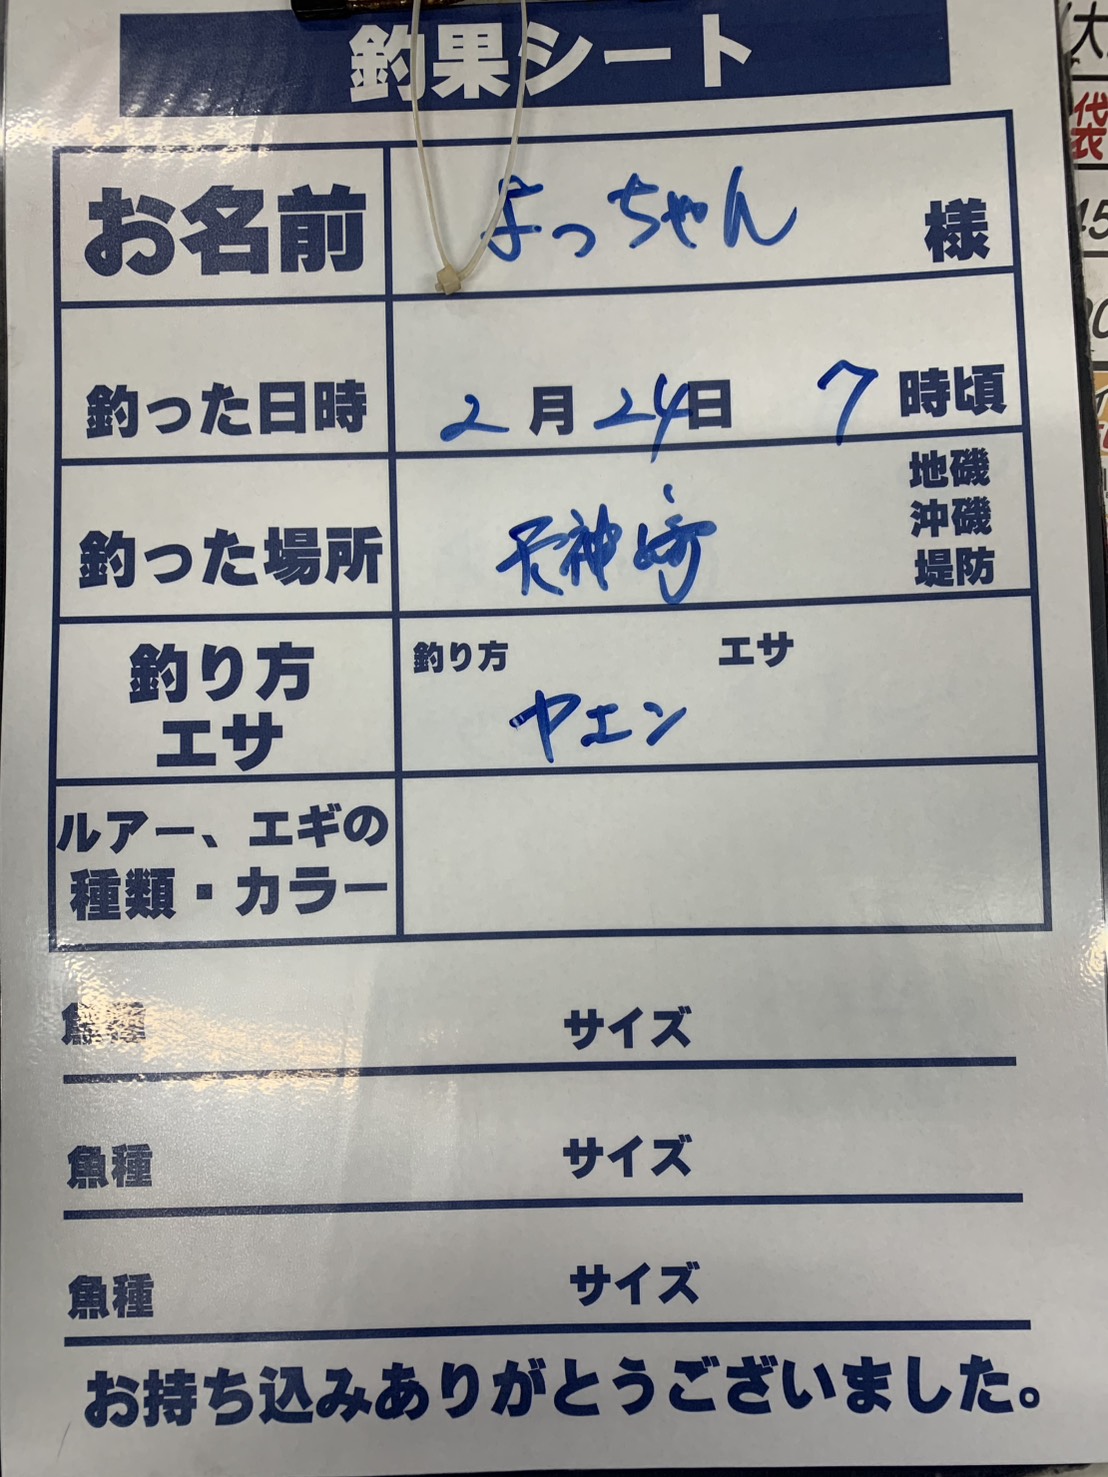 釣果シート
お名前 まっちゃん 様
釣った日時 2月24日 7時頃
釣った場所 天神崎 地磯 沖磯 堤防
釣り方 エサ
釣り方 エサ
ヤエン
ルアー、エギの
種類・カラー
魚種 サイズ
魚種 サイズ
魚種 サイズ
お持ち込みありがとうございました。
大
代